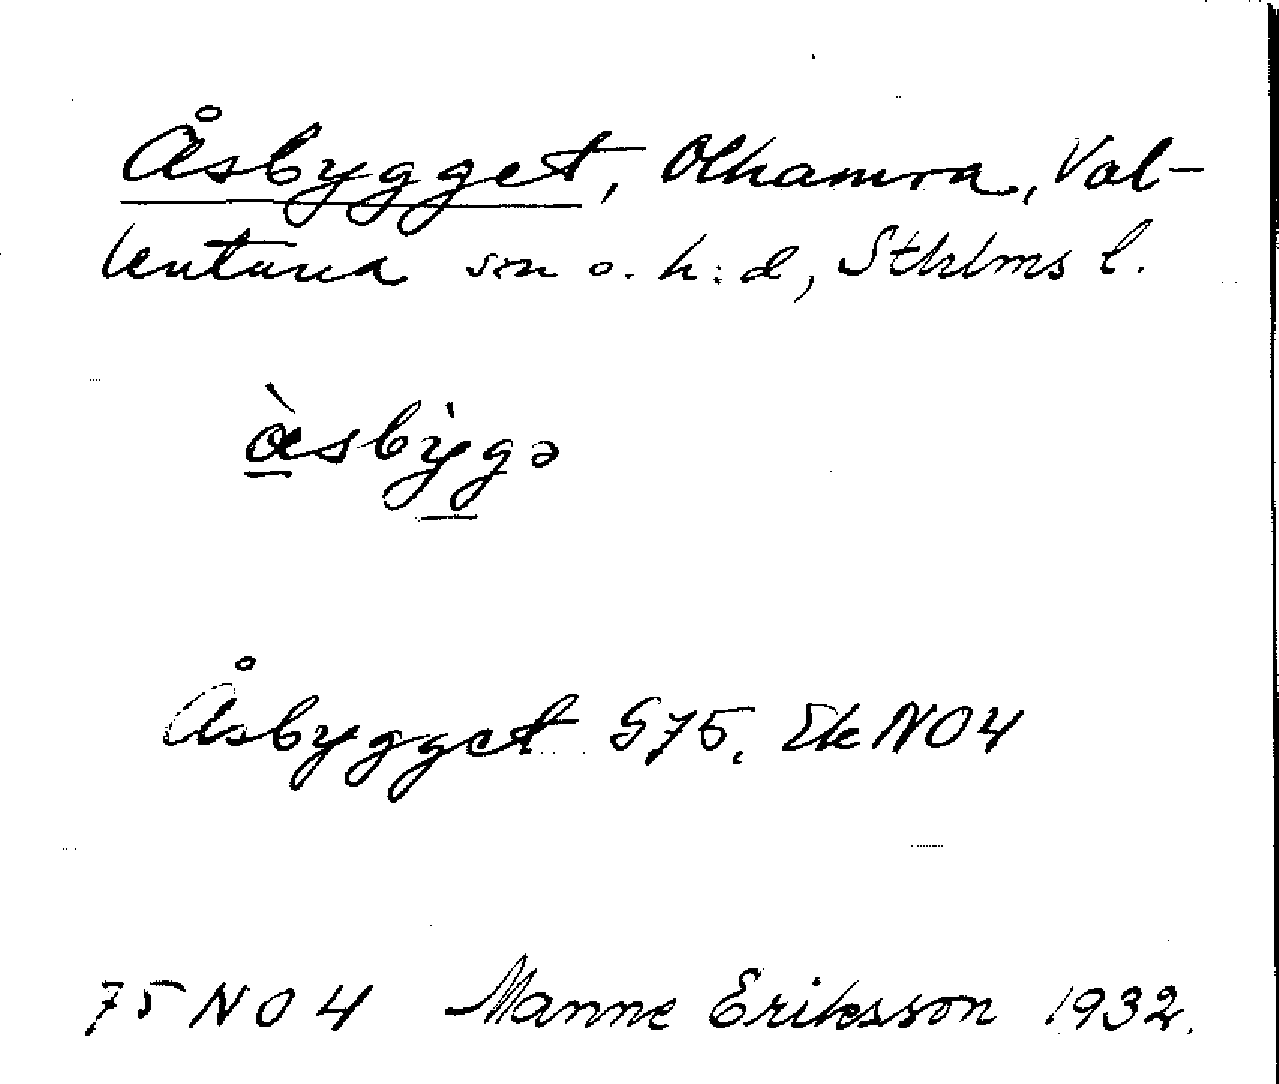 Åsbygget, Olhamra, Val-
lentuna sn o. h:d, Sthlms l.
å̀sbỳgə
Åsbygget G75. Ek NO4
75 NO 4 Manne Eriksson 1932.